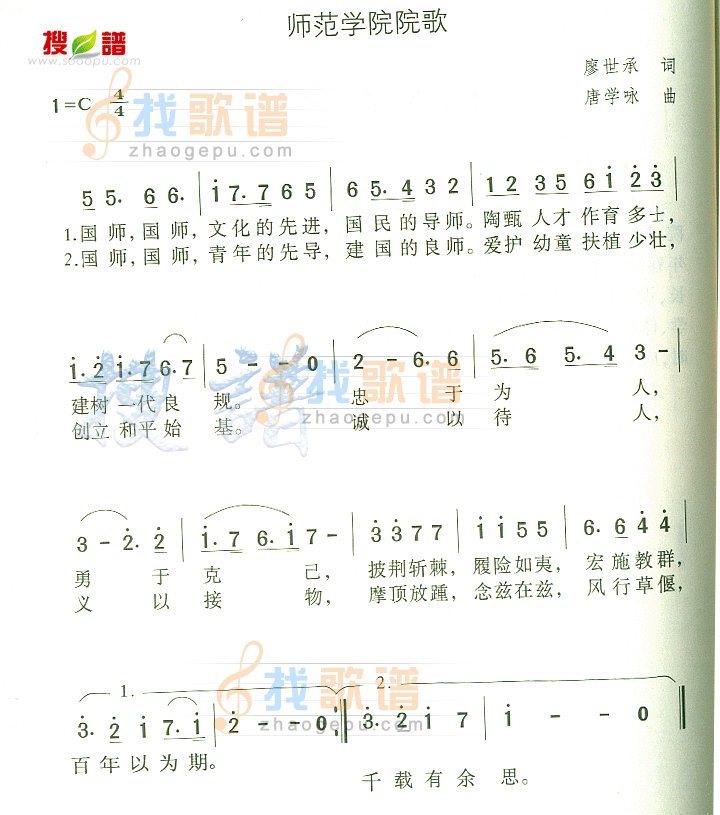 师范学院院歌
搜谱
www.sooopu.com
廖世承 词
唐学咏 曲
1=C 4/4
找歌谱
zhaogepu.com
5 5. 6 6. | i 7. 7 6 5 | 6 5. 4 3 2 | 1 2 3 5 6 i 2 3 |
1.国师,国师,文化的先进,国民的导师。陶甄 人才 作育 多士,
2.国师,国师,青年的先导,建国的良师。爱护 幼童 扶植 少壮,
i. 2 i. 7 6. 7 | 5 - - 0 | 2 - 6. 6 | 5. 6 5. 4 3 - |
搜谱
找歌谱
zhaogepu.com
建树 一代 良 规。 忠 于 为 人,
创立 和平 始 基。 诚 以 待 人,
3 - 2. 2 | i. 7 6. i 7 - | 3 3 7 7 | i i 5 5 | 6. 6 4 4 |
勇 于 克 己, 披荆斩棘, 履险如夷, 宏施教群,
义 以 接 物, 摩顶放踵, 念兹在兹, 风行草偃,
找歌谱
zhaogepu.com
1. 2.
3. 2 i 7. i | 2 - - 0 :‖ 3. 2 i 7 | i - - 0 ‖
百 年 以 为 期。
千 载 有 余 思。